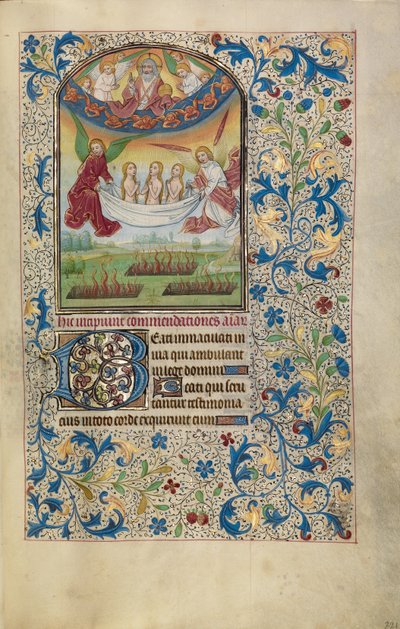 hic incipiunt commendationes aīaꝝ
Beati immaculati in
via qui ambulant
in lege domini
Beati qui scru
tantur testimonia
eius in toto corde exquirunt eum
221